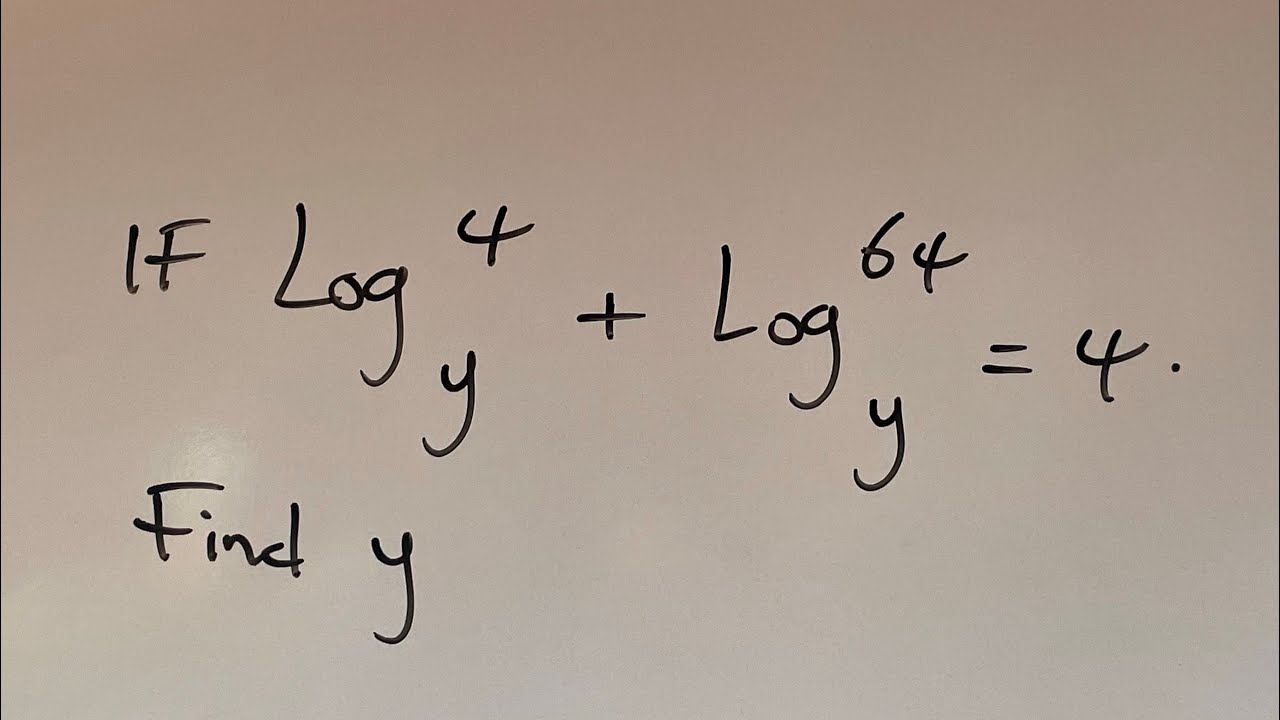 IF Log_y^4 + Log_y^64 = 4.
Find y